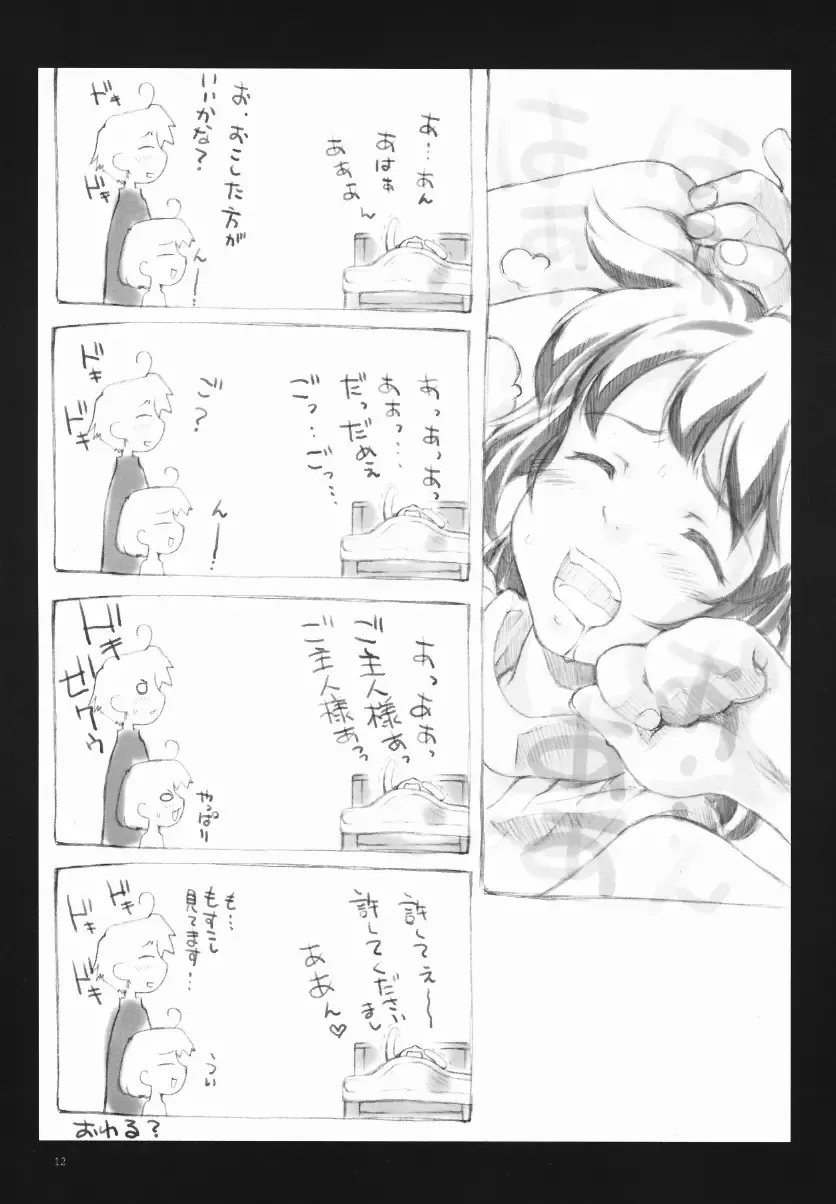 は…
はぁ…
あ…ん
はぁ
あ…あん
あはぁ
あああん
お、おこした方が
いいかな？
んー
ドキ
ドキ
あっあっあっ
あぁっ…
だっだめぇ
ごっ…ごっ…
ご？
んー
ドキ
ドキ
あっああっ
ご主人様あっ
ご主人様あっっ
ドキ
やっぱり
許してぇ〜〜
許してください
まし
ああん♡
も…
もすこし
見てます…
うぃ
ドキ
ドキ
ドキ
おわる？
12